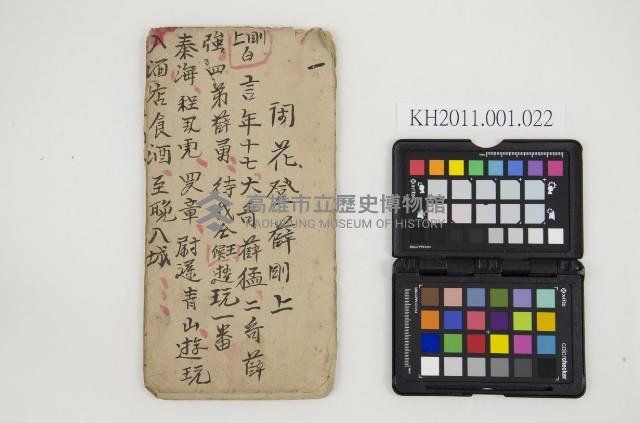 一
周花登薛剛上
剛上白
言年十七大哥薛猛二奇薛
強四弟薛勇待我仝候遊玩一番
秦海程羅章尉遲青山遊玩
入酒店食酒至晚入城
KH2011.001.022
高雄市立歷史博物館
KAOHSIUNG MUSEUM OF HISTORY